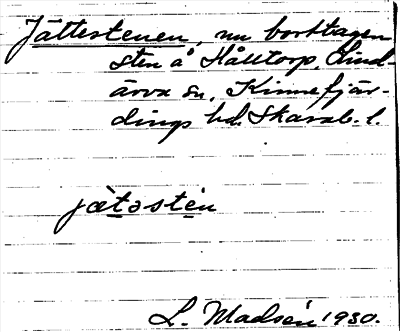 Jättestenen, nu borttagen
sten å Hålltorp, Lind-
ärva sn, Kinnefjär-
dings hd, Skarab. l.
jæ̀təstèn
L. Madsén 1930.